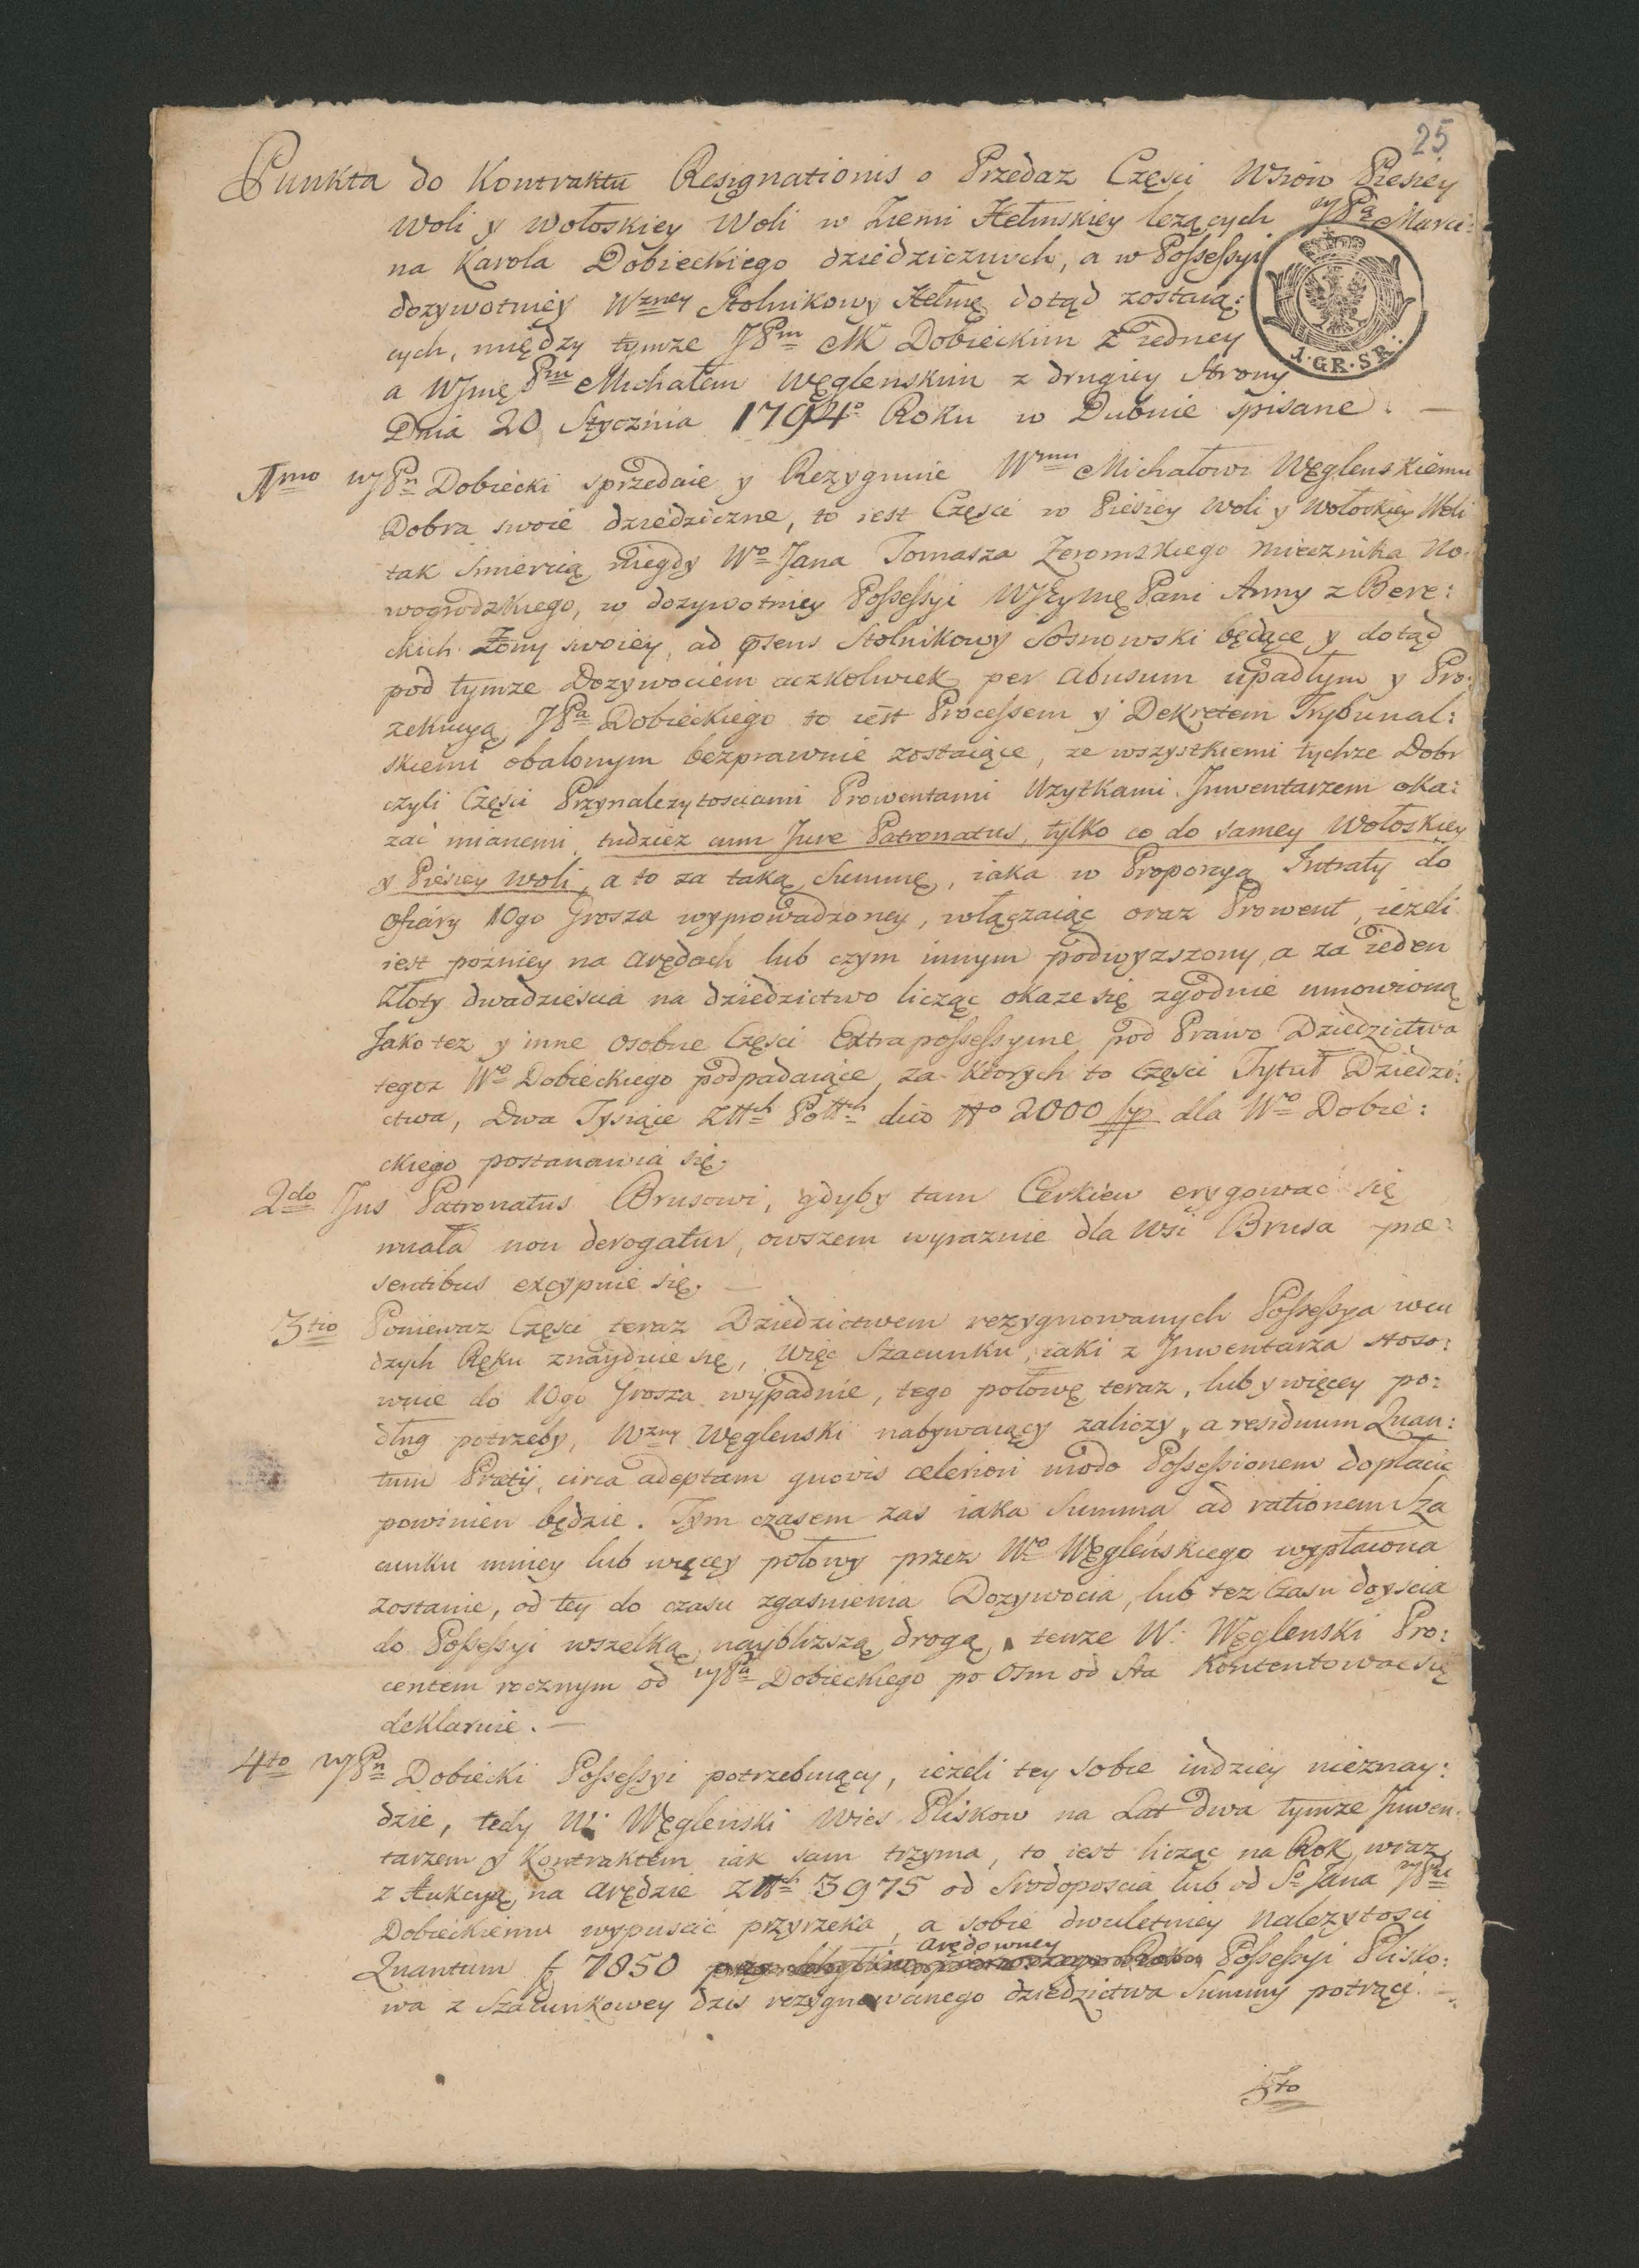 25
Punkta do Kontraktu Resignationis o Przedaz Części Wsiow Piesiey
Woli y Wołoskiey Woli w Ziemi Hełmskiey lezących JPa Marci:
na Karola Dobieckiego dziedzicznych, a w Possessyi
dozywotniey Wzney Stolnikowy Hełmę dotąd zostaią:
cych, między tymze JPm MK Dobieckim z iedney
a WJmę Pm Michałem Węglenskim z drugiey Strony
Dnia 20 Stycznia 1794o Roku w Dubnie spisane. —
1mo WJPn Dobiecki sprzedaie y Rezygnuie Wmu Michałowi Węglenskiemu
Dobra swoie dziedziczne, to iest Części w Piesiey Woli y Wołoskiey Woli
tak smiercią niegdy Wo Jana Tomasza Zeromskiego Miecznika No:
wogrodzkiego, w dozywotniey Possessyi WJEymę Pani Anny z Bere:
ckich Zony swoiey, ad psens Stolnikowy Sosnowski będące y dotąd
pod tymze Dozywociem aczkolwiek per abusum upadłym y Pro:
zekucyą JPa Dobieckiego to iest Processem y Dekretem Trybunal:
skiemi obalonym bezprawnie zostaiące, ze wszystkiemi tychze Dobr
czyli Części Przynalezytosciami Prowentami Uzytkami Jnwentarzem oka:
zać mianemi, tudziez cum Jure Patronatus, tylko co do samey Wołoskiey
y Piesiey Woli, a to za taką Summę, iaka w Proporcyą Intraty do
Ofiary 10go Grosza wyprowadzoney, włączaiąc oraz Prowent, iezeli
iest pozniey na arędach lub czym innym podwyzszony, a za ieden
Złoty dwadziescia na dziedzictwo licząc okaze się zgodnie umowioną
Jako tez y inne osobne Części Extrapossessyine pod Prawo Dziedzictwa
tegoz Wo Dobieckiego podpadaiące, za ktorych to Części Tytuł Dziedzi:
ctwa, Dwa Tysiące Złłch Połłch dico No 2000 fp dla Wo Dobie:
ckiego postanawia się.
2do Jus Patronatus Brusowi, gdyby tam Cerkiew erygować się
miała non derogatur, owszem wyraznie dla Wsi Brusa prae:
sentibus excypuie się. —
3tio Poniewaz Części teraz Dziedzictwem rezygnowanych Possessya w cu
dzych Ręku znayduie się, Więc Szacunku, iaki z Jnwentarza stoso:
wnie do 10go Grosza wypadnie, tego połowę teraz, lub y więcey po:
dług potrzeby, Wzny Węglenski nabywaiący zaliczy, a residuum Quan:
tum Pretij, circa adeptam quovis celeriori modo Possessionem dopłacic
powinien będzie. Tym czasem zas iaka Summa ad rationem Sza
cunku mniey lub więcey połowy przez Wo Węgleńskiego wypłacona
zostanie, od tey do czasu zgasnienia Dozywocia, lub tez Czasu doyscia
do Possessyi wszelką naybliższą drogą, tenze W: Węglenski Pro:
centem rocznym od WJPa Dobieckiego po Osm od Sta Kontentowac się
deklaruie. —
4to WJPn Dobiecki Possessyi potrzebuiący, iezeli tey sobie indziey nieznay:
dzie, tedy W: Węglenski Wies Pliskow na Lat dwa tymze Jnwen:
tarzem y Kontraktem iak sam trzyma, to iest licząc na Rok wraz
z Aukcyą na arędzie Złłch 3975 od Srodoposcia lub od So Jana WJPu
Dobieckiemu wypuscić przyrzeka, a sobie dwuletniey nalezytosci
arędowney
Quantum f 7850 Possessyi Plisko:
wa z Szacunkowey dzis rezygnowanego dziedzictwa Summy potrąci. —
5to
1·GR·SR·